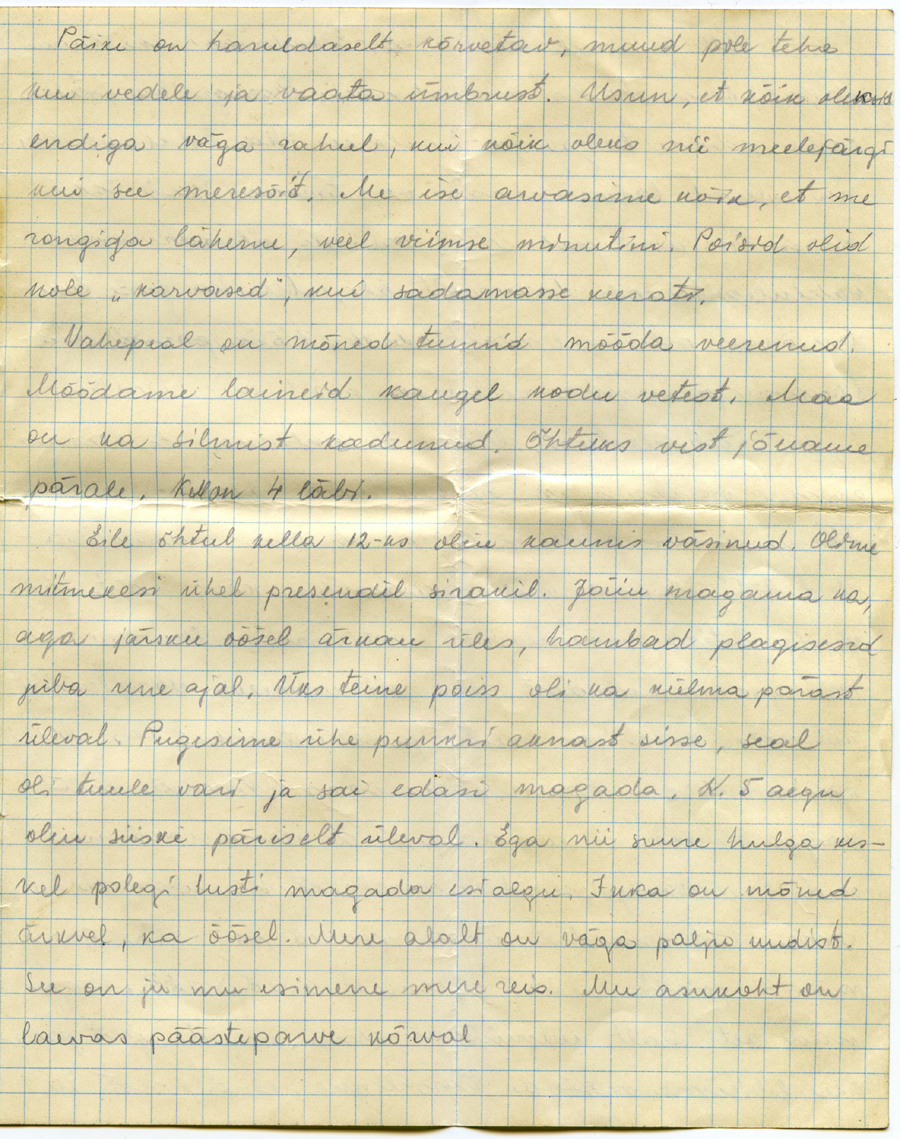 Päike on haruldaselt kõrvetav, muud pole teha
kui vedele ja vaata ümbrust. Usun, et kõik oleksid
endiga väga rahul, kui kõik oleks nii meelejärgi
kui see meresõit. Me ise arvasime kõik, et me
rongiga läheme, veel viimse minutini. Poisid olid
kole „karvased“, kui sadamasse keerati.
Vahepeal on mõned tunnid mööda veerenud.
Möödame laineid kaugel kodu vetest. Maa
on ka silmist kadunud. Õhtuks vist jõuame
pärale. Kell on 4 läbi.
Eile õhtul kella 12-ks olin kaunis väsinud. Olime
mitmekesi ühel presendil sirakil. Jäin magama ka,
aga järsku öösel ärkan üles, hambad plagisesid
juba une ajal. Üks teine poiss oli ka külma pärast
üleval. Pugesime ühe punkri aknast sisse, seal
oli tuule vari ja sai edasi magada. K. 5 aegu
olin siiski päriselt üleval. Ega nii suure hulga kes-
kel polegi lusti magada esialgu. Ikka on mõned
ärkvel, ka öösel. Mere alalt on väga palju uudist.
See on ju mu esimene mere reis. Mu asukoht on
laevas päästeparve kõrval